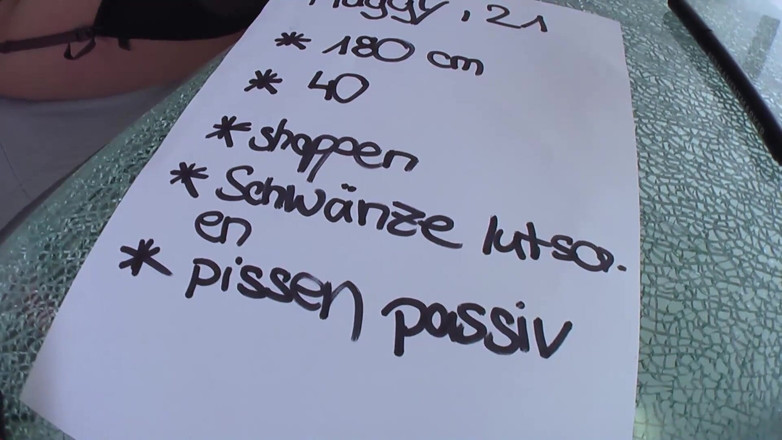 Maggy, 21
* 180 cm
* 40
* shoppen
* Schwänze lutsch.
en
* pissen passiv